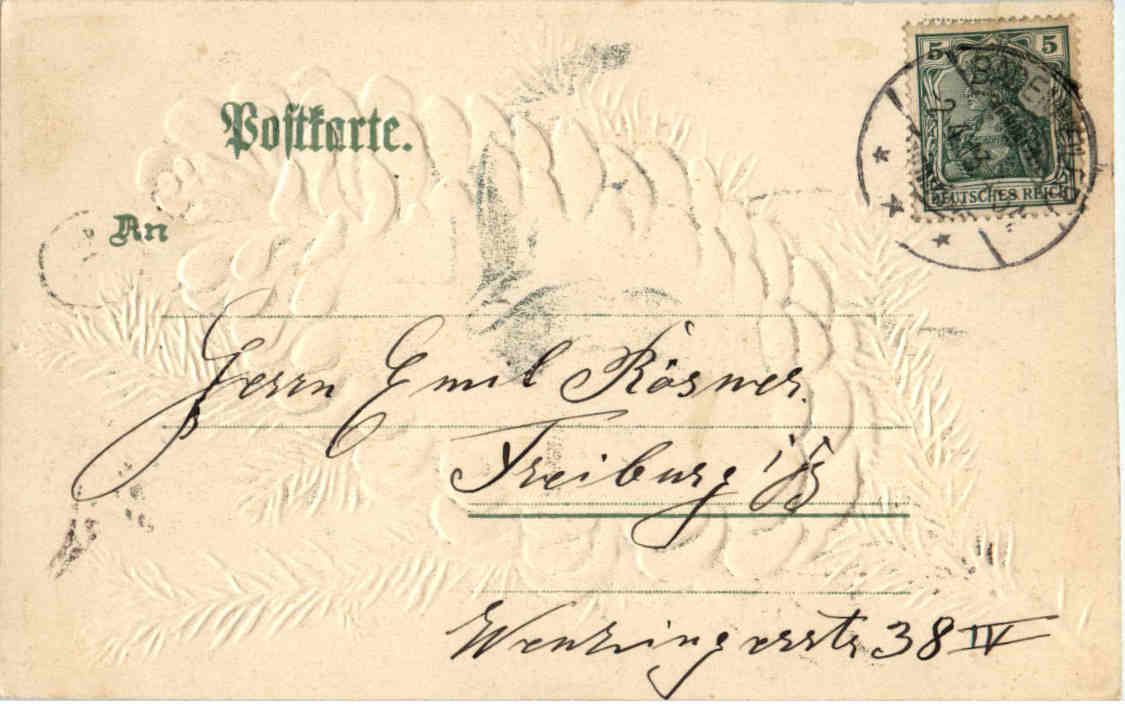 Postkarte.
5 5
BADEN
DEUTSCHES REICH
An
Herrn Emil Rösner.
Freiburg i/B
Wenzingerstr. 38 IV